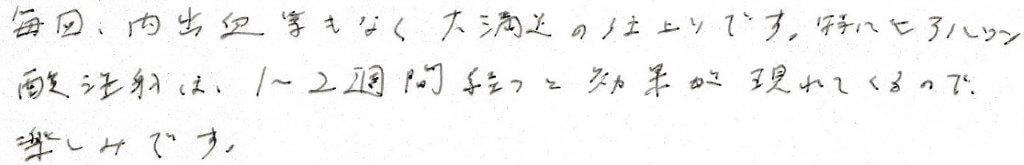 毎回、内出血等もなく大満足の仕上りです。特にヒアルロン
酸注射は、1〜2週間経つと効果が現れてくるので、
楽しみです。